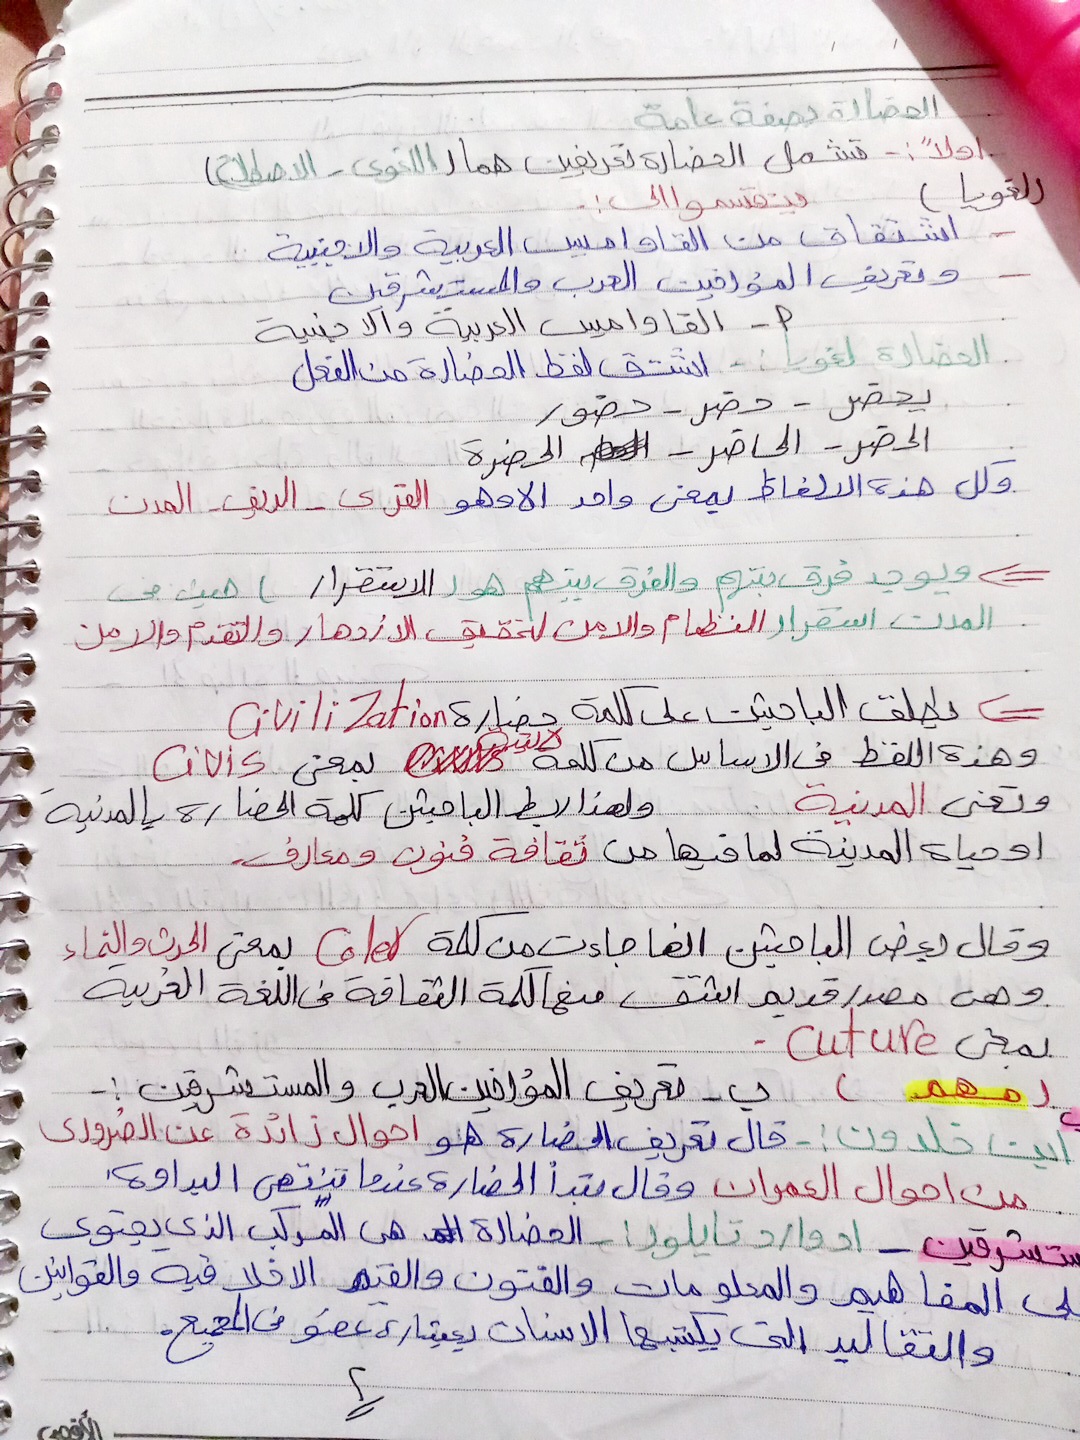 الحضارة بصفة عامة
اولاً :- تشمل الحضارة تعريفين هما ( اللغوى - الاصطلاح )
( لغويا ) وينقسموا الى :-
- اشتقاق من القاواميس العربية والاجنبية
- وتعريف المؤرخين العرب والمستشرقين
P - القاواميس العربية والاجنبية
الحضارة لغويا :- اشتق لفظ الحضارة من الفعل
يحضر - حضر - حضور
الحضر - الحاضر - الحضرة
وكل هذه الالفاظ بمعنى واحد الاوهو القرى - الريف - المدن
ويوجد فرق بينهم والفرق بينهم هو ( الاستقرار ) حيث فى
المدن استقرار النظام والامن لتحقيق الازدهار والتقدم والامن
يطلق الباحثين على كلمة حضارة CiviliZation
وهذة اللفظ فى الاساس من كلمة لاتينية بمعنى Civis
وتعنى المدنية ولهذا ربط الباحثين كلمة الحضارة بالمدنية
او حياة المدنية لما فيها من ثقافة فنون ومعارف.
وقال بعض الباحثين انها جاءت من كلمة Coler بمعنى الحرث والنماء
وهى مصدر قديم اشتق منها كلمة الثقافة فى اللغة الغربية
بمعنى Cuture -
( مهم ) ب - تعريف المؤرخين العرب والمستشرقين :-
ابن خلدون :- قال تعريف الحضارة هو احوال زائدة عن الضرورى
من احوال العمران وقال تبدأ الحضارة عندما تنتهى البداوة
مستشرقين - ادوارد تايلور :- الحضارة هى المركب الذى يحتوى
على المفاهيم والمعلومات والفنون والقيم الاخلاقية والقوانين
والتقاليد التى يكتسبها الانسان بعتباره عضو فى المجتمع.